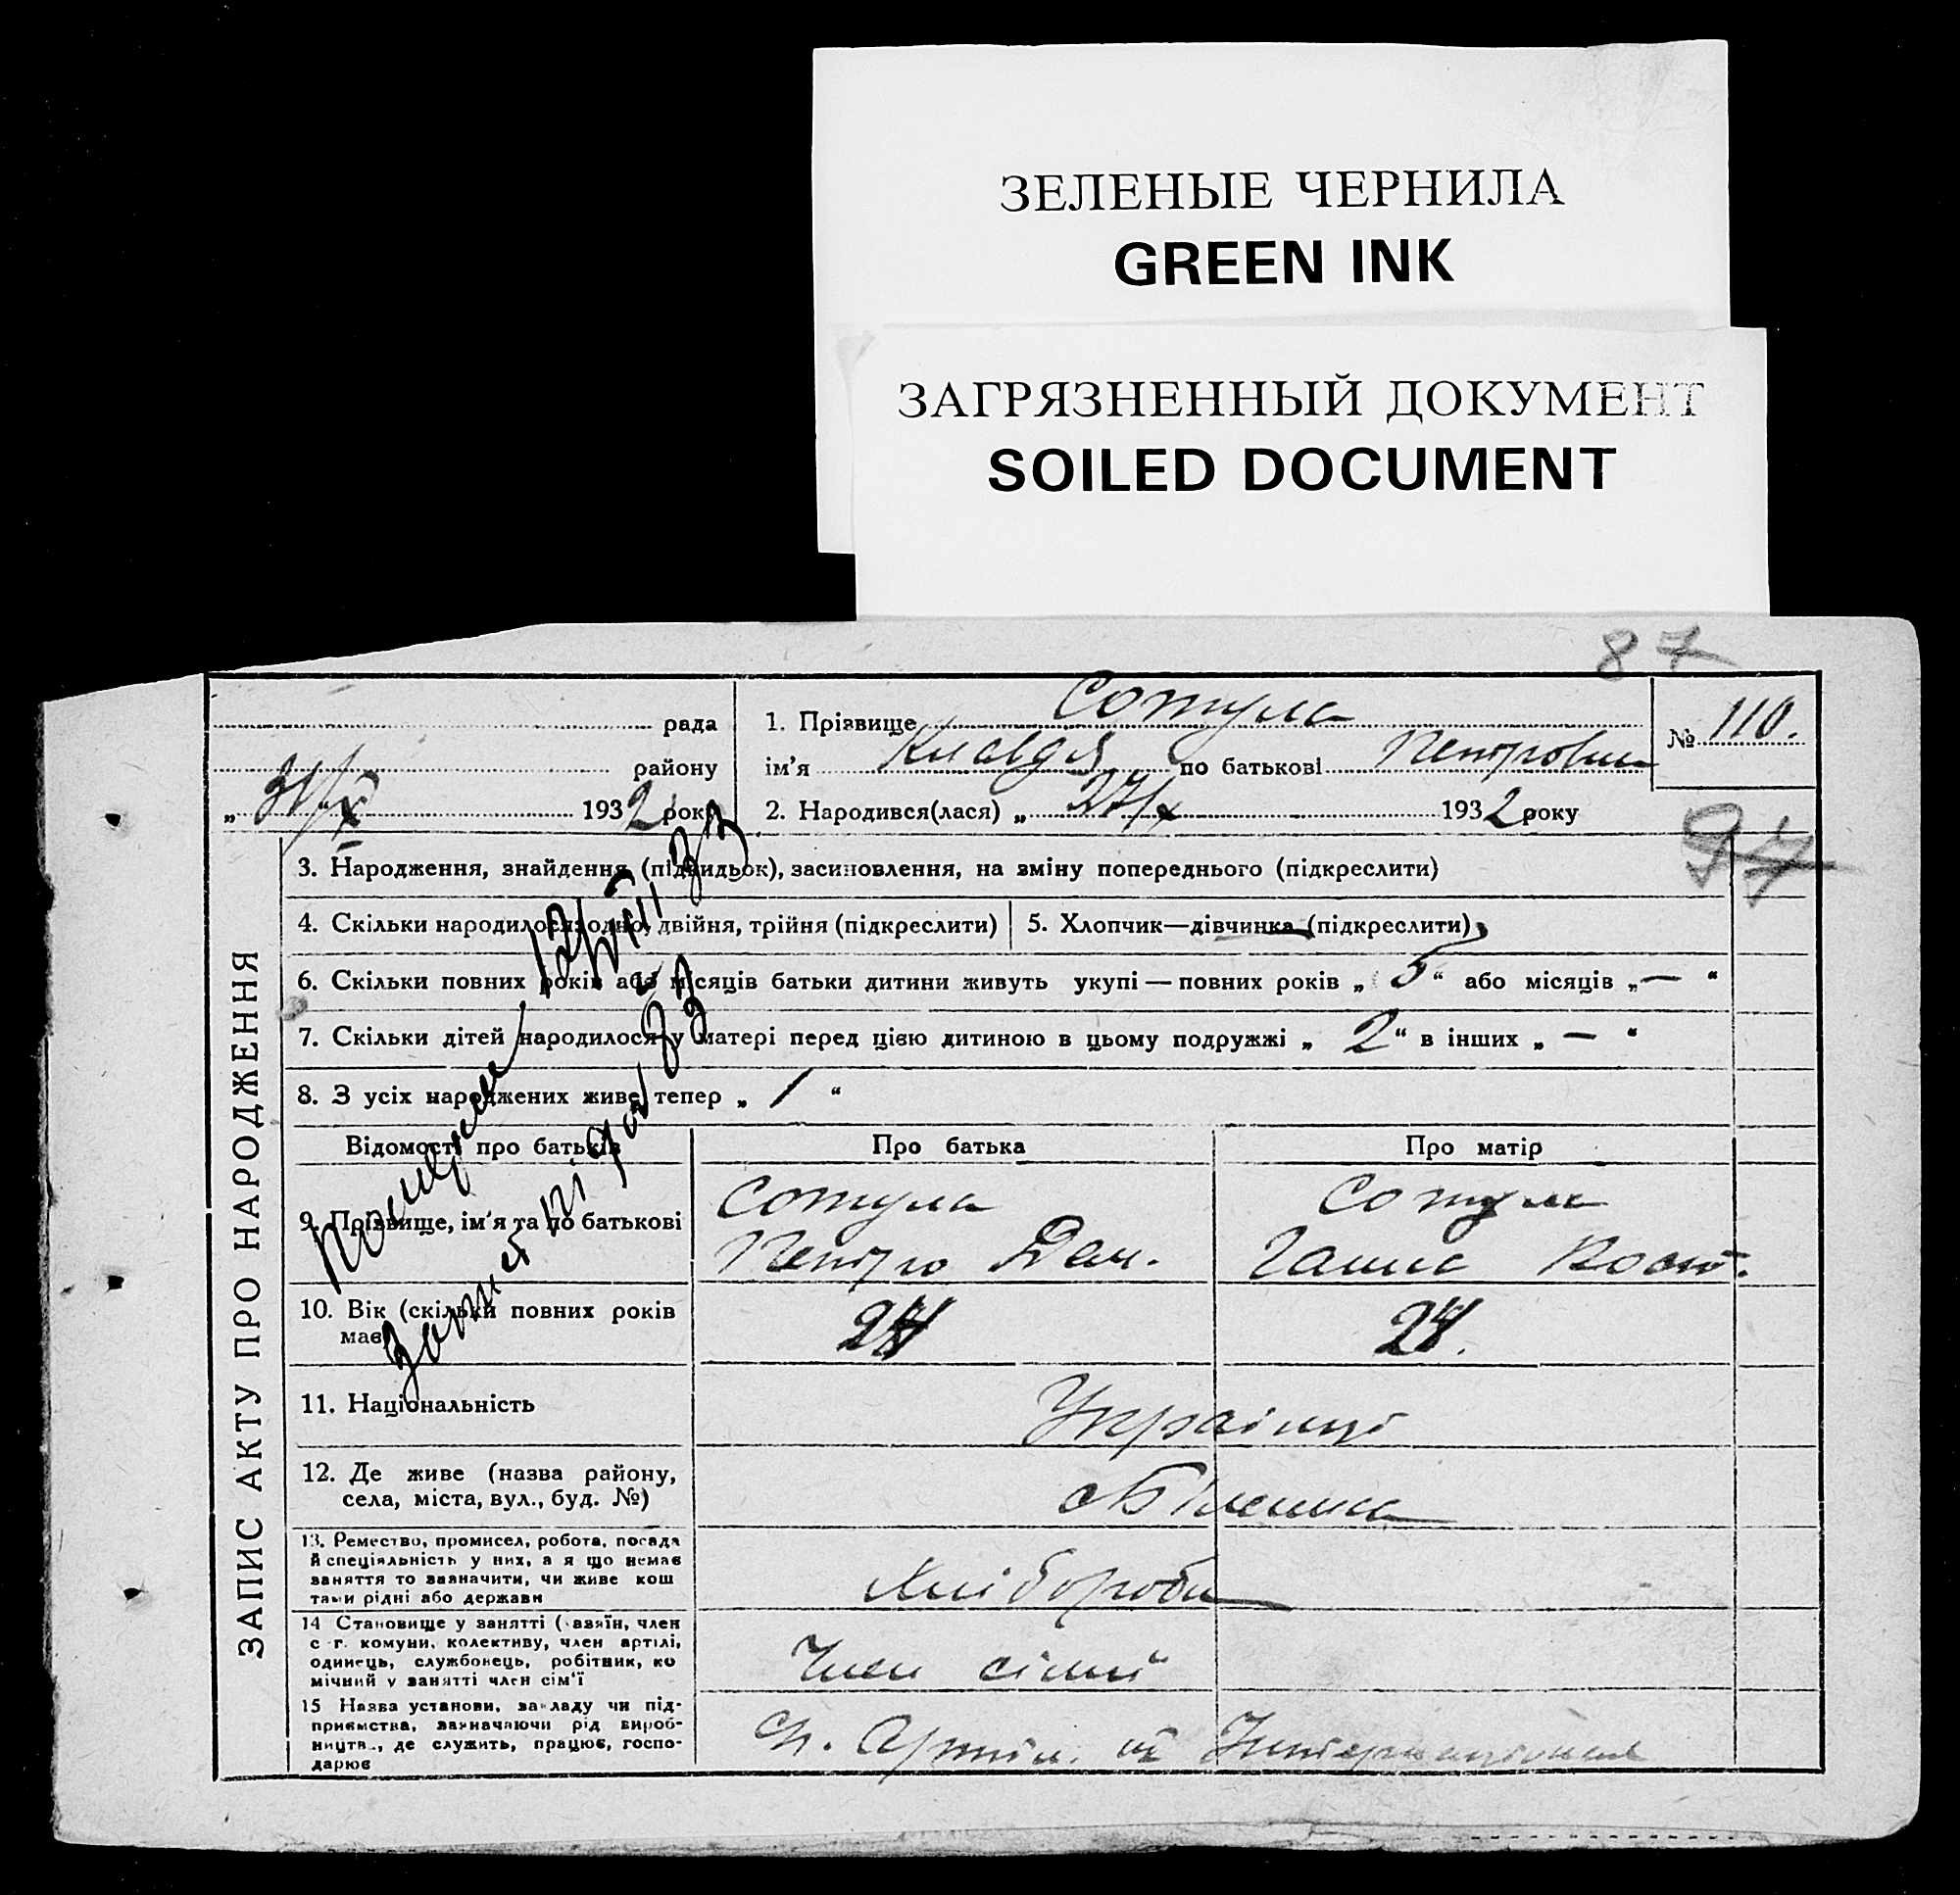 ЗЕЛЕНЫЕ ЧЕРНИЛА
GREEN INK
ЗАГРЯЗНЕННЫЙ ДОКУМЕНТ
SOILED DOCUMENT
87
рада
району
„ 31/X 1932 року
1. Прізвище Сотула
ім'я Клавдія по батькові Петровна
2. Народився(лася) „ 27/X 1932 року
№ 110.
97
ЗАПИС АКТУ ПРО НАРОДЖЕННЯ
3. Народження, знайдення (підкидьок), засиновлення, на зміну попереднього (підкреслити)
4. Скільки народилося: одно, двійня, трійня (підкреслити)
5. Хлопчик—дівчинка (підкреслити)
6. Скільки повних років або місяців батьки дитини живуть укупі — повних років „ 5 “ або місяців „ — “
7. Скільки дітей народилося у матері перед цією дитиною в цьому подружжі „ 2 “ в інших „ — “
8. З усіх народжених живе тепер „ 1 “
Відомості про батьків
Про батька
Про матір
9. Прізвище, ім'я та по батькові
Сотула
Петро Дан.
Сотула
Ганна Кост.
10. Вік (скільки повних років
має)
11. Національність
Українці
12. Де живе (назва району,
села, міста, вул., буд. №)
13. Ремество, промисел, робота, посада
й спеціяльність у них, а я що немає
заняття то зазначити, чи живе кош
тами рідні або держави
Хлібороби
14 Становище у занятті (хазяїн, член
с г. комуни, колективу, член артілі,
одинець, службовець, робітник, ко
мічний у занятті член сім'ї
Член сімьі
15 Назва установи, закладу чи під-
приємства, зазначаючи рід вироб-
ництв., де служить, працює, госпо-
дарює
Інтернаціонал
33
33